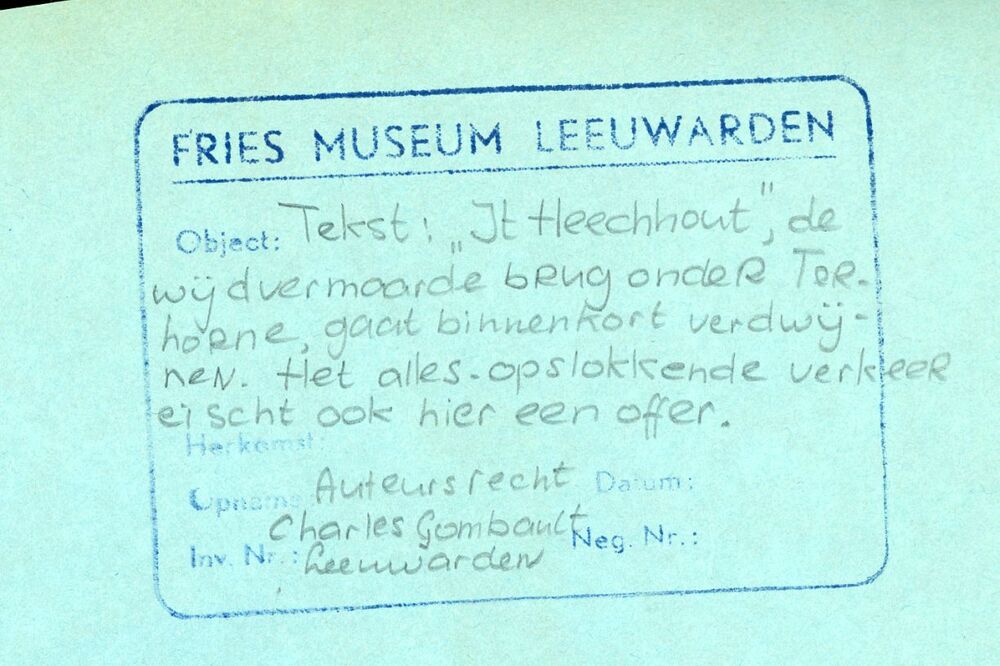 FRIES MUSEUM LEEUWARDEN
Object: Tekst: „It Heechhout", de
wijdvermaarde brug onder Ter-
horne, gaat binnenkort verdwij-
nen. Het alles-opslokkende verkeer
eischt ook hier een offer.
Herkomst:
Opname Auteursrecht Datum:
Charles Gombault
Neg. Nr.:
Inv. Nr.: Leeuwarden